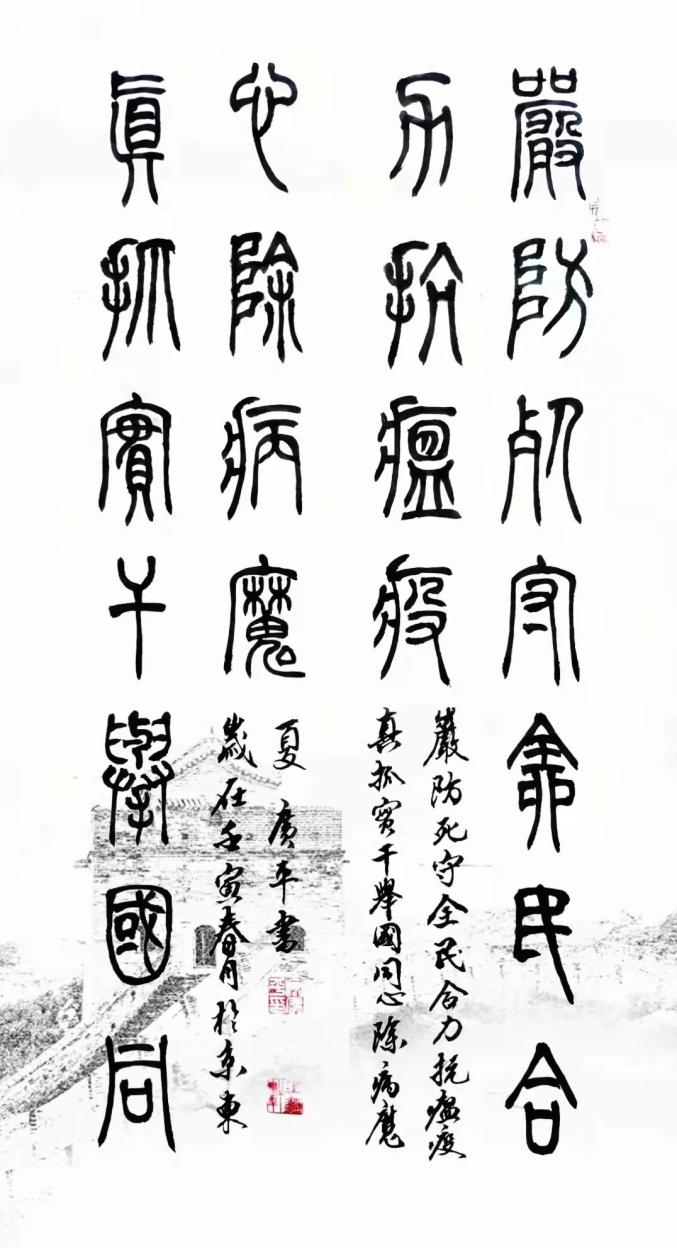 嚴防死守全民合
力抗瘟疫
真抓實干舉國同
心除病魔
嚴防死守全民合力抗瘟疫
真抓實干舉國同心除病魔
夏廣平書
歲在壬寅春月於京東